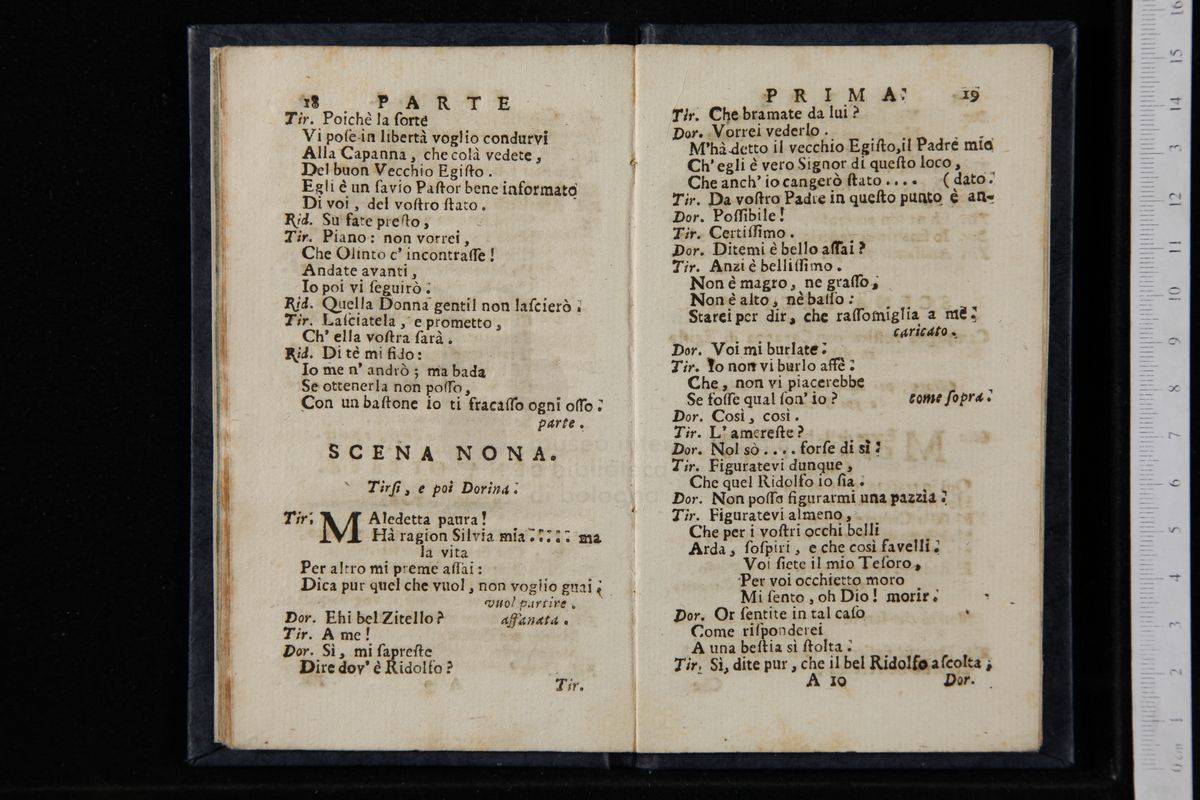 18 PARTE
Tir. Poichè la ſorte
Vi poſe in libertà voglio condurvi
Alla Capanna, che colà vedete,
Del buon Vecchio Egiſto.
Egli è un ſavio Paſtor bene informato
Di voi, del voſtro ſtato.
Rid. Su fate preſto,
Tir. Piano: non vorrei,
Che Olinto c' incontraſſe!
Andate avanti,
Io poi vi ſeguirò.
Rid. Quella Donna gentil non laſcierò.
Tir. Laſciatela, e prometto,
Ch' ella voſtra ſarà.
Rid. Di tè mi fido:
Io me n' andrò; ma bada
Se ottenerla non poſſo,
Con un baſtone io ti fracaſſo ogni oſſo.
parte.
SCENA NONA.
Tirſi, e poi Dorina.
Tir. MAledetta paura!
Hà ragion Silvia mia..... ma
la vita
Per altro mi preme aſſai:
Dica pur quel che vuol, non voglio guai;
vuol partire.
Dor. Ehi bel Zitello? affanata.
Tir. A me!
Dor. Sì, mi ſapreſte
Dire dov' è Ridolfo?
Tir.
PRIMA. 19
Tir. Che bramate da lui?
Dor. Vorrei vederlo.
M'hà detto il vecchio Egiſto, il Padre mio
Ch' egli è vero Signor di queſto loco,
Che anch' io cangerò ſtato.... (dato.
Tir. Da voſtro Padre in queſto punto è an-
Dor. Poſſibile!
Tir. Certiſſimo.
Dor. Ditemi è bello aſſai?
Tir. Anzi è belliſſimo.
Non è magro, ne graſſo,
Non è alto, nè baſſo:
Starei per dir, che raſſomiglia a mè.
caricato.
Dor. Voi mi burlate.
Tir. Io non vi burlo affè.
Che, non vi piacerebbe
Se foſſe qual ſon' io? come ſopra.
Dor. Così, così.
Tir. L' amereſte?
Dor. Nol sò.... forſe di sì.
Tir. Figuratevi dunque,
Che quel Ridolfo io ſia.
Dor. Non poſſo figurarmi una pazzia.
Tir. Figuratevi almeno,
Che per i voſtri occhi belli
Arda, ſoſpiri, e che così favelli.
Voi ſiete il mio Teſoro,
Per voi occhietto moro
Mi ſento, oh Dio! morir.
Dor. Or ſentite in tal caſo
Come riſponderei
A una beſtia sì ſtolta.
Tir. Sì, dite pur, che il bel Ridolfo aſcolta;
A 10 Dor.